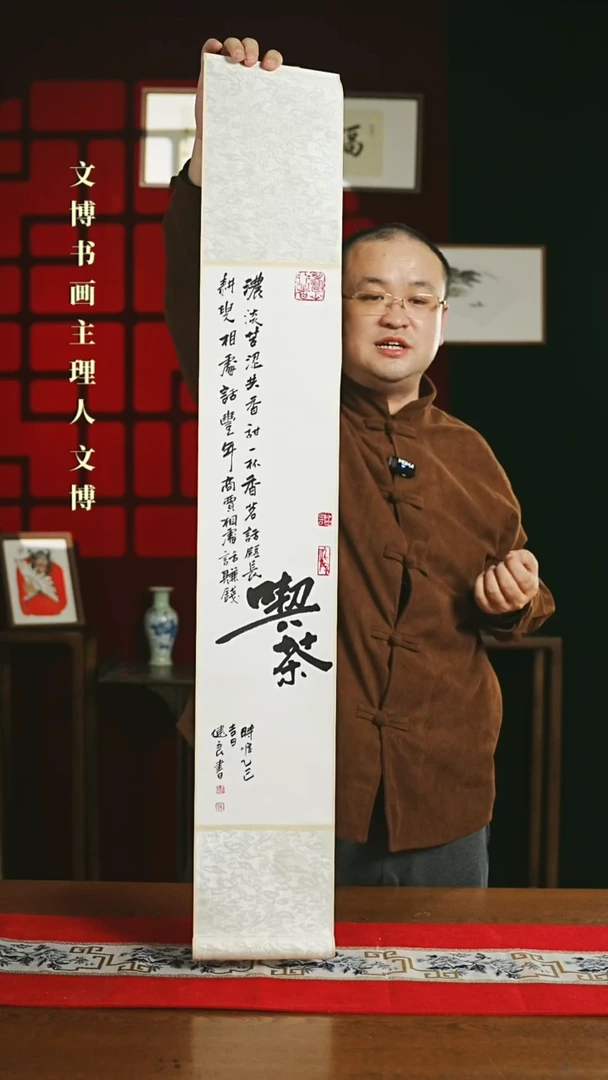 文博书画主理人文博
濃淡苦涩共香甜一杯香茗話短長
耕叟相遇話豐年商賈相遇話賺錢
喫茶
時惟乙巳
吉日
健良書
福